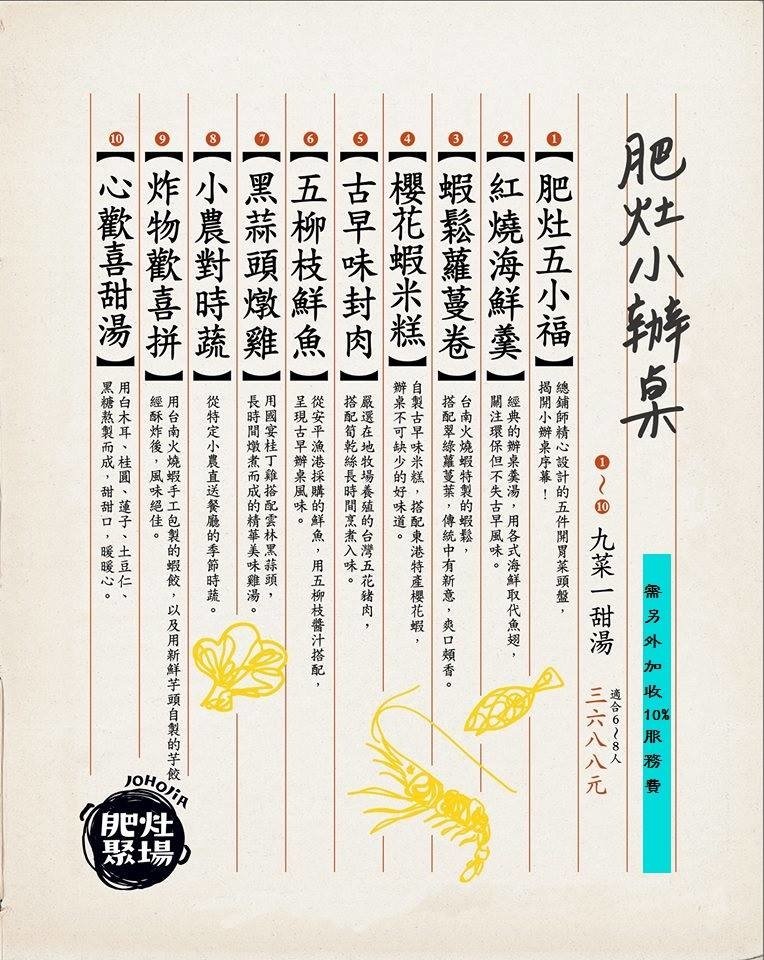 肥灶小辦桌
需另外加收10%服務費
❶～❿ 九菜一甜湯
適合6～8人
三六八八元
1
【肥灶五小福】
總鋪師精心設計的五件開胃菜頭盤，
揭開小辦桌序幕！
2
【紅燒海鮮羹】
經典的辦桌羹湯，用各式海鮮取代魚翅，
關注環保但不失古早風味。
3
【蝦鬆蘿蔓卷】
台南火燒蝦特製的蝦鬆，
搭配翠綠蘿蔓葉，傳統中有新意，爽口頰香。
4
【櫻花蝦米糕】
自製古早味米糕，搭配東港特產櫻花蝦，
辦桌不可缺少的好味道。
5
【古早味封肉】
嚴選在地牧場養殖的台灣五花豬肉，
搭配筍乾絲長時間烹煮入味。
6
【五柳枝鮮魚】
從安平漁港採購的鮮魚，用五柳枝醬汁搭配，
呈現古早辦桌風味。
7
【黑蒜頭燉雞】
用國宴桂丁雞搭配雲林黑蒜頭，
長時間燉煮而成的精華美味雞湯。
8
【小農對時蔬】
從特定小農直送餐廳的季節時蔬。
9
【炸物歡喜拼】
用台南火燒蝦手工包製的蝦餃，以及用新鮮芋頭自製的芋餃
經酥炸後，風味絕佳。
10
【心歡喜甜湯】
用白木耳、桂圓、蓮子、土豆仁、
黑糖熬製而成，甜甜口，暖暖心。
JOHOJIA
肥灶
聚場